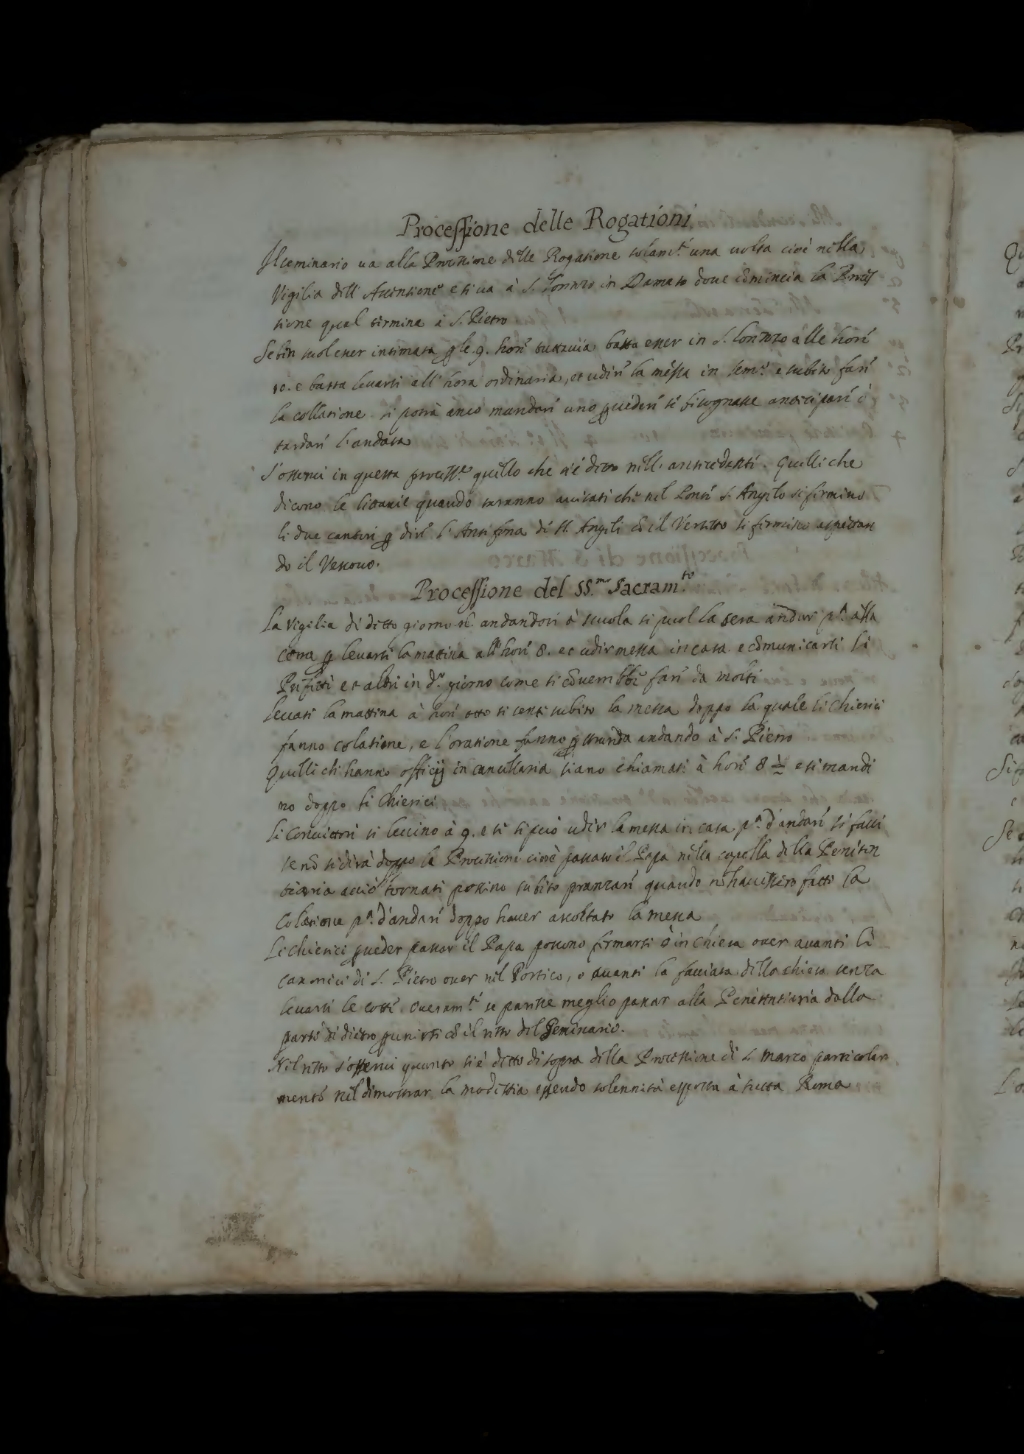 Processione delle Rogationi
Il seminario va alla Processione delle Rogatione solam.te una volta cioè nella
Vigilia dell' Ascensione e si va à S. Lorenzo in Damaso dove cõmincia la Proces
sione qual termina à S. Pietro
Se ben suol esser intimata p le 9. hore tuttavia basta esser in S. Lorenzo alle hore
10. e basta levarsi all' hora ordinaria, et udire la messa in sem.o e subito fare
la collatione. si potrà anco mandare uno p vedere se bisognasse anticipare ò
tardare l'andata
S'osservi in questa process.e quello che s'è detto nell' antecedenti. Quelli che
dicono le litanie quando saranno avisati che nel Ponte S. Angelo si fermino
li due cantori p dire l'Antifona de SS. Angeli cõ il Versetto si fermino aspettan
do il Vescovo.
Processione del SS.mo Sacram.to
La vigilia di detto giorno nõ andandosi à scuola si puol la sera andar p.a alla
cena p levarsi la mattina alle hore 8. et udir messa in casa e cõmunicarsi li
Prefetti et altri in d.o giorno come si cõverrebbe fare da molti
Levati la mattina à hore otto si senti subito la messa doppo la quale li chierici
fanno colatione, e l'oratione fanno p strada andando à S. Pietro
Quelli che hanno officij in cancellaria siano chiamati à hore 8 1/2 e si mandi
no doppo li chierici
Li Convittori si levino à 9. e se si può udir la messa in casa p.a d'andare si facci
se nõ si dirà doppo la Processione cioè passato il Papa nella capella della Peniten
tiaria acciò tornati possino subito pranzare quando nõ havessero fatto la
Colatione p.a d'andare doppo haver ascoltato la messa
Li chierici p veder passar il Papa possono fermarsi ò in chiesa over avanti li
canonici di S. Pietro over nel Portico, o avanti la facciata della chiesa senza
levarsi le cotte, overam.te se paresse meglio passar alla Penitentiaria dalla
parte di dietro p unirsi cõ il resto del Seminario.
Nel resto s'osservi quanto s'è detto di sopra della Processione di S. Marco particolar
mente nel dimostrar la modestia essendo solennità esposta à tutta Roma